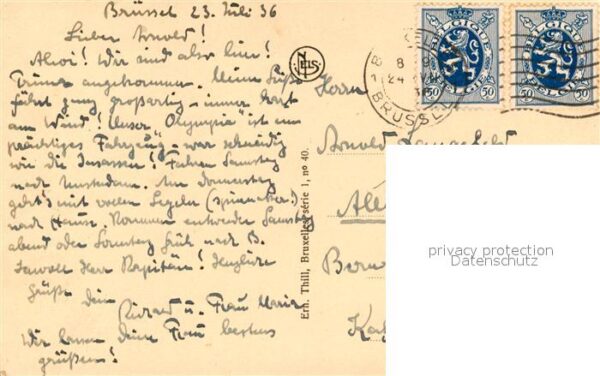 Brüssel 23. Juli 36
Lieber Arnold!
Ahoi! Wir sind also hier!
Prima angekommen. Meine Süße
fährt ganz großartig - immer hart
am Wind! Unser "Olympia" ist ein
prächtiges Fahrzeug - war schneidig
wie die Insassen! Fahren Samstag
nach Amsterdam. Am Donnerstag
geht's mit vollen Segeln (spinnacker)
nach Hause. Kommen entweder Samstag
abend oder Sonntag früh nach B.
Jawoll Herr Kapitän! Herzliche
Grüße Dein
Richard u. Frau Maria
Wir lassen Deine Frau bestens
grüßen!
Ern. Thill, Bruxelles, série 1, no 40.
Herrn
Arnold
BELGIQUE
BELGIE
50 50
BELGIQUE
BELGIE
50 50
BRUSSEL
privacy protection
Datenschutz